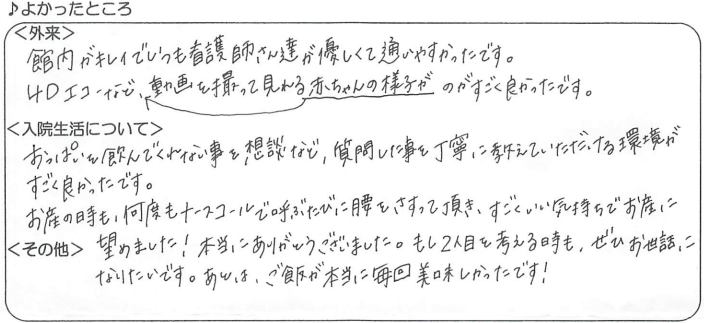 ♪よかったところ
<外来>
館内がキレイでいつも看護師さん達が優しくて通いやすかったです。
4Dエコーなど、動画を撮って見れる赤ちゃんの様子が のがすごく良かったです。
<入院生活について>
おっぱいを飲んでくれない事を想談など、質問した事を丁寧に教えていただける環境が
すごく良かったです。
お産の時も、何度もナースコールで呼ぶたびに腰をさすって頂き、すごくいい気持ちでお産に
<その他> 望めました！本当にありがとうございました。もし2人目を考える時も、ぜひお世話に
なりたいです。あとは、ご飯が本当に毎回美味しかったです！